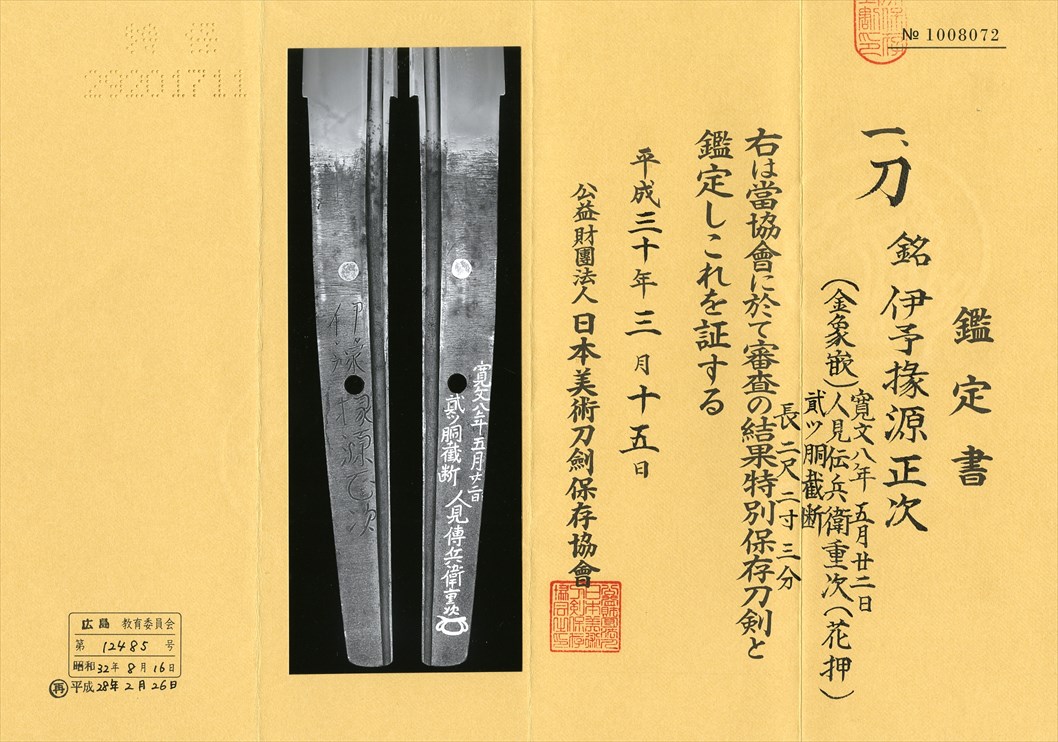 № 1008072
鑑定書
一、刀 銘 伊予掾源正次
(金象嵌)寛文八年五月廿二日
人見伝兵衛重次(花押)
貳ツ胴截断
長 二尺二寸三分
右は當協會に於て審査の結果特別保存刀剣と
鑑定しこれを証する
平成三十年三月十五日
公益財團法人 日本美術刀劍保存協會
寛文八年五月廿二日
貳ツ胴截断
人見傳兵衛重次
伊豫掾源正次
特保
29201711
広島 教育委員会
第 12485 号
昭和32年8月16日
再 平成28年2月26日